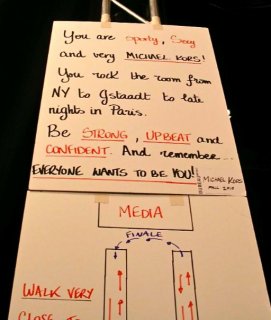 You are sporty, Sexy
and very MICHAEL KORS!
You rock the room from
NY to Gstaadt to late
nights in Paris.
Be STRONG, UPBEAT and
CONFIDENT. And remember...
EVERYONE WANTS TO BE YOU!
MICHAEL KORS
FALL 2010
MEDIA
FINALE
WALK VERY
CLOSE TO